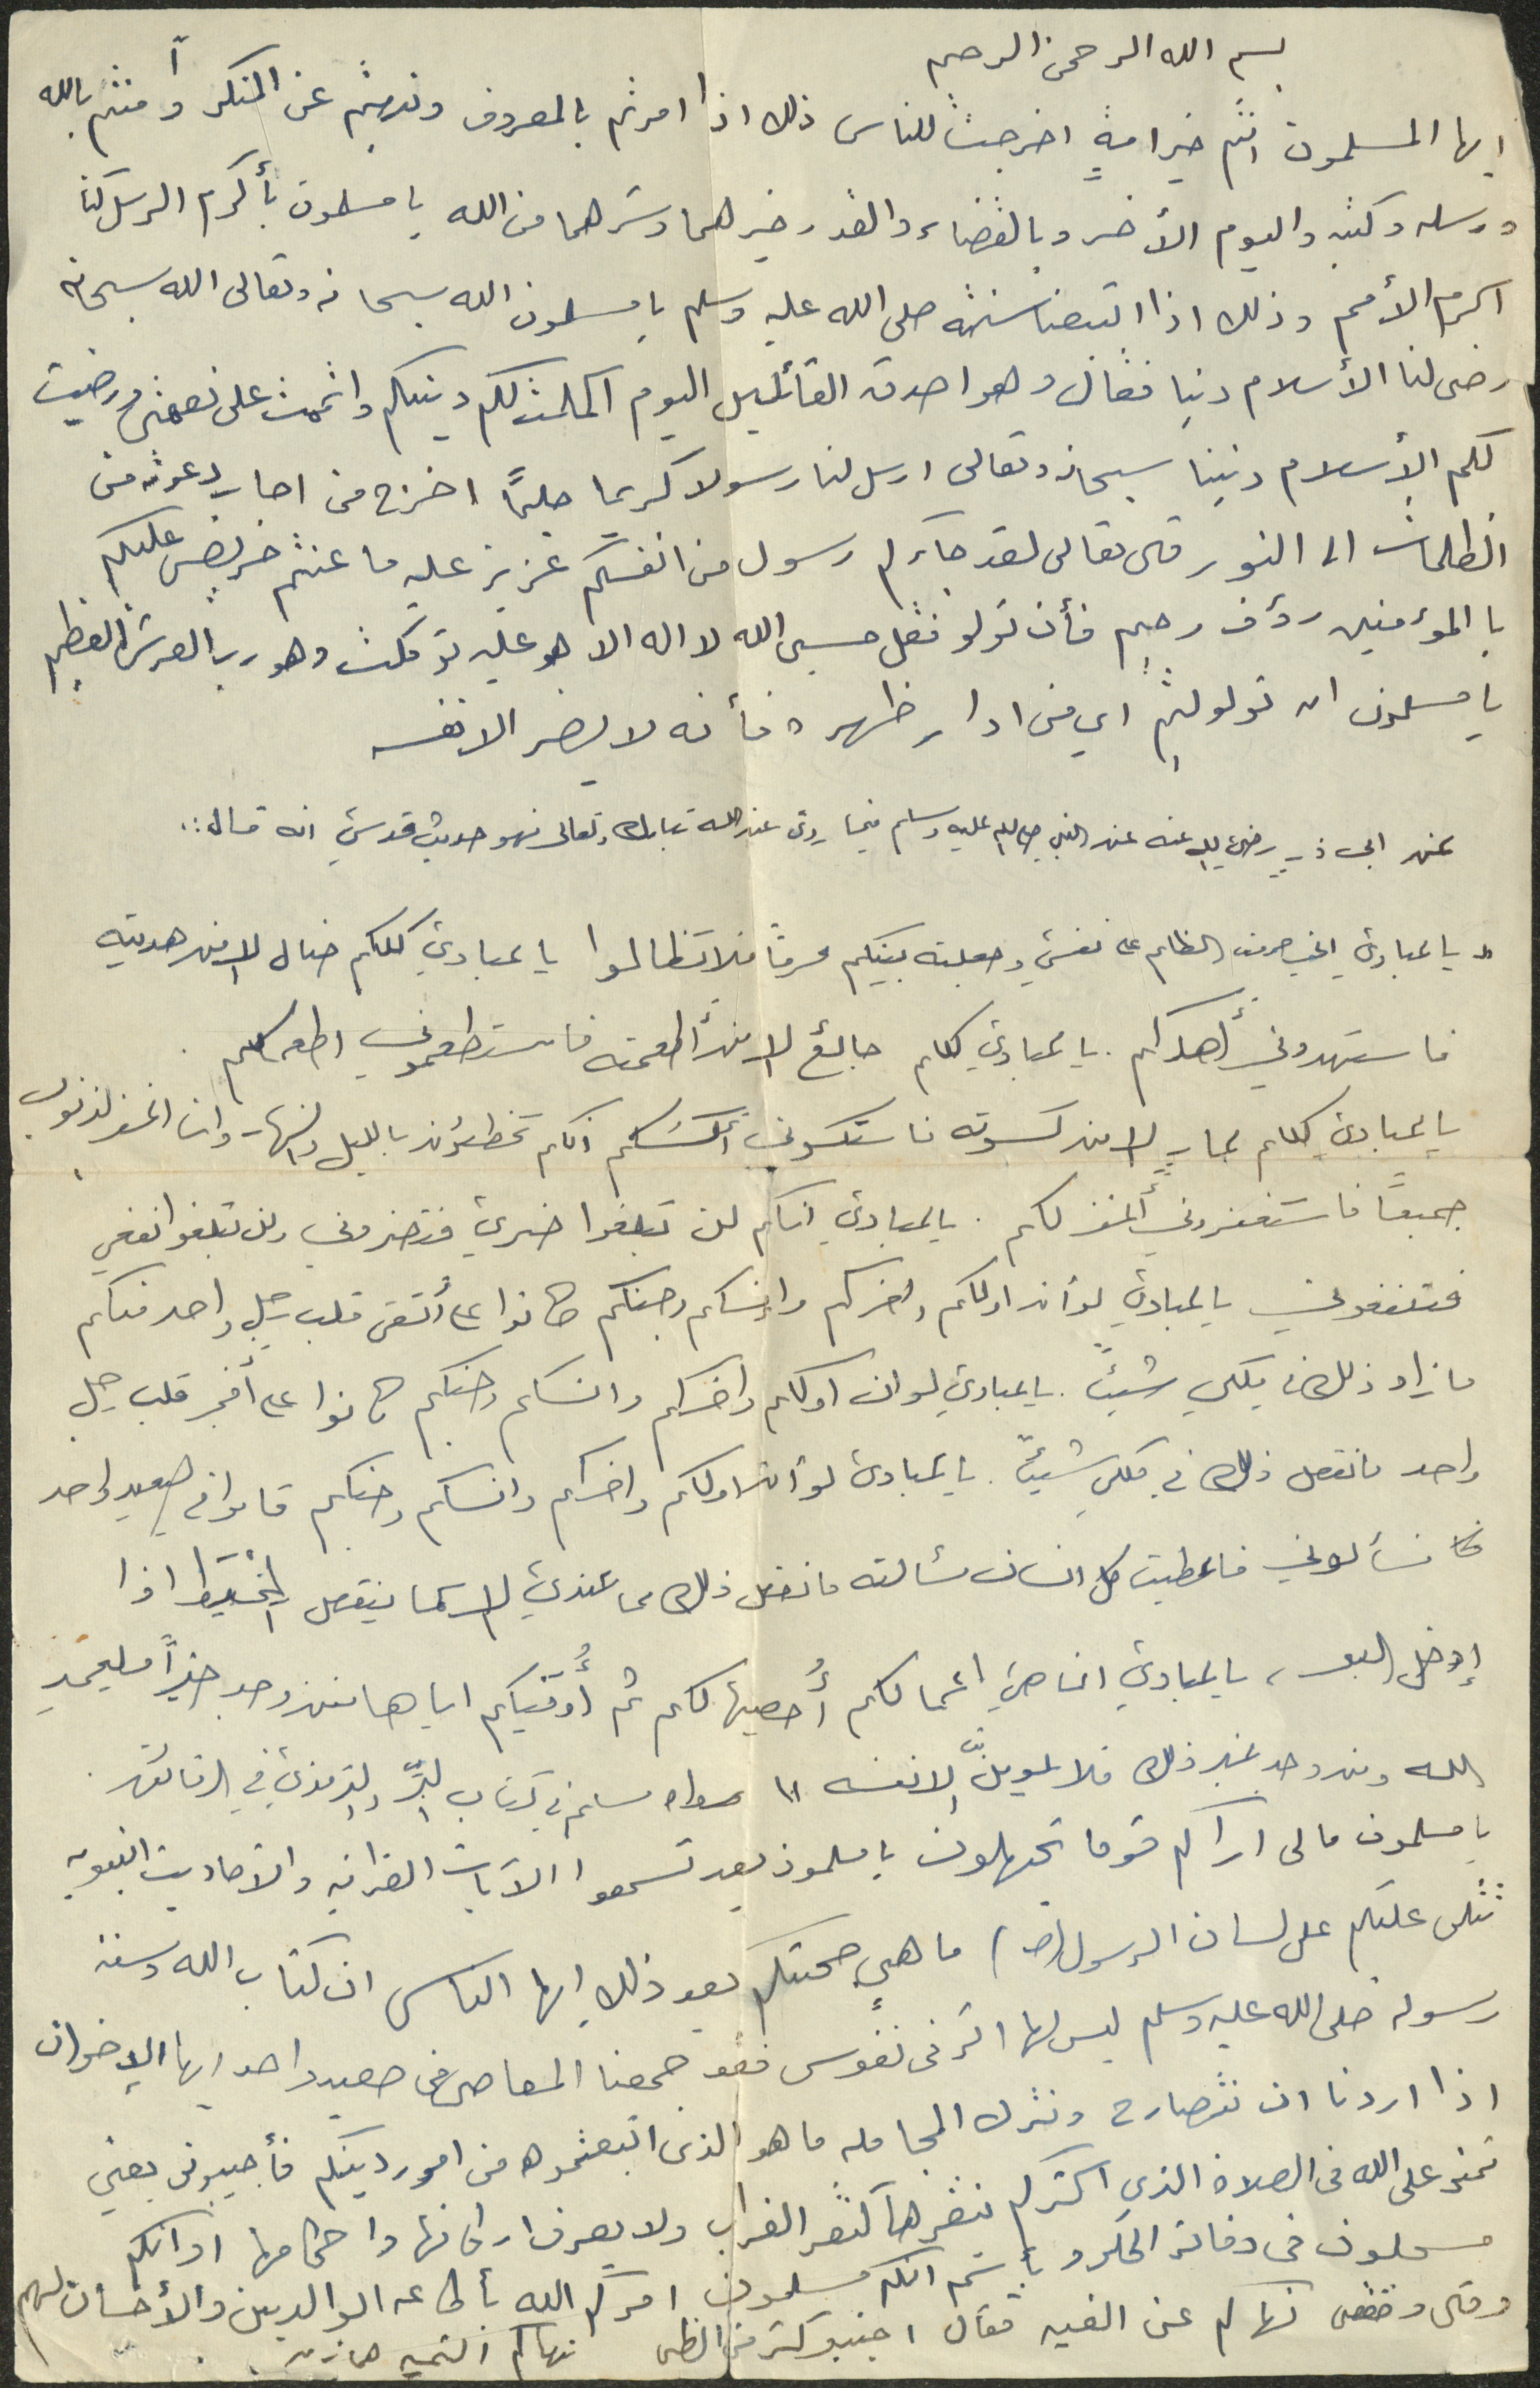 بسم الله الرحمن الرحيم
ايها المسلمون انتم خير امةٍ اخرجت للناس ذلك اذا امرتم بالمعروف ونهيتم عن المنكر وآمنتم بالله
ورسله وكتبه واليوم الأخر وبالقضاء والقدر خيرهما وشرهما من الله يا مسلمون بأكرم الرسل كنا
اكرم الأمم وذلك اذا اتبعنا سنته صلى الله عليه وسلم يا مسلمون الله سبحانه وتعالى الله سبحانه
رضى لنا الأسلام دينا فقال وهو اصدق القائليل اليوم اكملت لكم دينكم واتممت على نعمتى ورضيت
لكم الأسلام دنينا سبحانه وتعالى ارسل لنا رسولا كريما حليمًا اخرج من اجاب دعوته من
الظلمات الى النور قال تعالى لقد جاءكم رسول من انفسكم عزيز عليه ما عنتم حريص عليكم
با المؤمنين رؤف رحيم فأن تولو فقل حسبى الله لا اله الا هو عليه توكلت وهو رب العرش العظيم
يا مسلمون ان تولوليتم اي من ادار ظهره فأنه لا يضر الا نفسه
عن ابى ذر رضي الله عنه عن النبي صلى الله عليه وسلم فيما روى عن الله تبارك وتعالى فهو حديث قدسي انه قال :
" يا عبادي اني حرمت الظلم على نفسي وجعلته بينكم محرمًا فلا تظالموا يا عبادي كلكم ضال إلا من هديته
فاستهدوني أهدكم . يا عبادي كلكم جائع إلا من أطعمته فاستطعموني اطعمكم .
يا عبادي كلكم عارٍ إلا من كسوته فاستكسوني أكسكم انكم تخطئون بالليل والنهار وانا اغفر الذنوب
جميعًا فاستغفروني أغفر لكم . يا عبادي انكم لن تبلغوا ضري فتضروني ولن تبلغوا نفعي
فتنفعوني يا عبادي لو أن اولكم واخركم وإنسكم وجنكم كانوا على أتقى قلب رجل واحد منكم
ما زاد ذلك في ملكي شيئًا . يا عبادي لو ان اولكم واخركم وانسكم وجنكم كانوا على أفجر قلب رجل
واحد ما نقص ذلك في ملكي شيئًا . يا عبادي لو أن اولكم واخركم وانسكم وجنكم قاموا في صعيد واحد
فسألوني فاعطيت كل انسان مسألته ما نقص ذلك مما عندي إلا كما ينقص المخيط اذا
إدخل البحر ، يا عبادي انما هي اعمالكم أُحصيها لكم ثم أُوفيكم اياها فمن وجد خيرًا فليحمد
الله ومن وجد غير ذلك فلا يلومنَّ إلا نفسه " رواه مسلم في كتاب البرِّ والترمذي في الرقائق .
يا مسلمون مالى اراكم قوما تجهلون يا مسلمون بعد تسمعوا الآيات القرانيه والاحاديث النبويه
تتلى عليكم على لسان الرسول (ص) ما هي حجتكم بعد ذلك ايها الناس ان كتاب الله وسنة
رسوله صلى الله عليه وسلم ليس لها اثر فى نفوس فقد جمعنا المعاصى فى صعيد واحد ايها الإخوان
اذا اردنا ان نتصارح ونترك المجامله ما هو الذى اتبعتموه من امور دينكم فأجيبونى بعنى
تمنو على الله فى الصلاة الذي اكثركم ينقرها كنقر الغراب ولا يعرف اركانها واحكامها او انكم
مسجلون فى دفاتر الحكرو بأسم انكم مسلمون امركم الله بأطاعه الوالدين والأحسان لهم
وقال نهاكم عن الغيبه فقال اجتنبو كثر من الظن نهاكم النميه